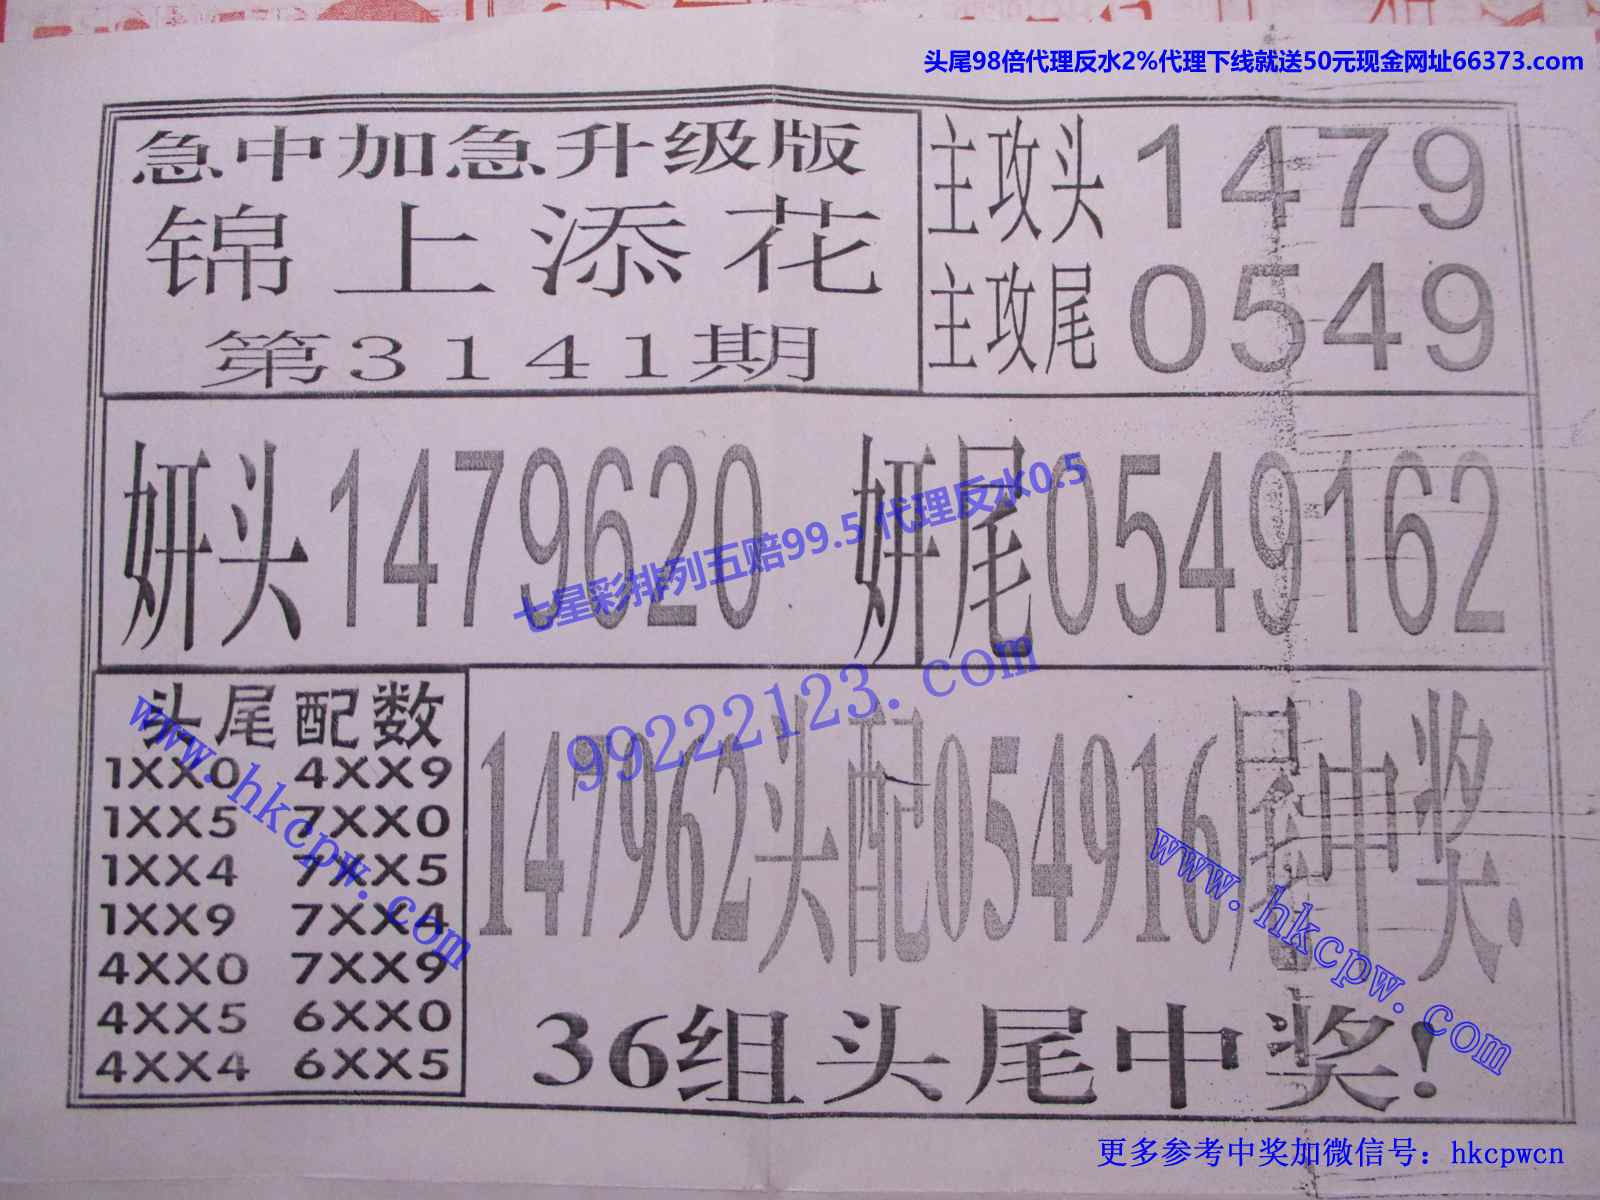 头尾98倍代理反水2%代理下线就送50元现金网址66373.com
急中加急升级版
锦上添花
第3141期
主攻头1479
主攻尾0549
妍头1479620
妍尾0549162
七星彩排列五赔99.5 代理反水0.5
99222123.com
头尾配数
1XX0 4XX9
1XX5 7XX0
1XX4 7XX5
1XX9 7XX4
4XX0 7XX9
4XX5 6XX0
4XX4 6XX5
www.hkcpw.com
147962头配054916尾中奖.
www.hkcpw.com
36组头尾中奖!
更多参考中奖加微信号：hkcpwcn